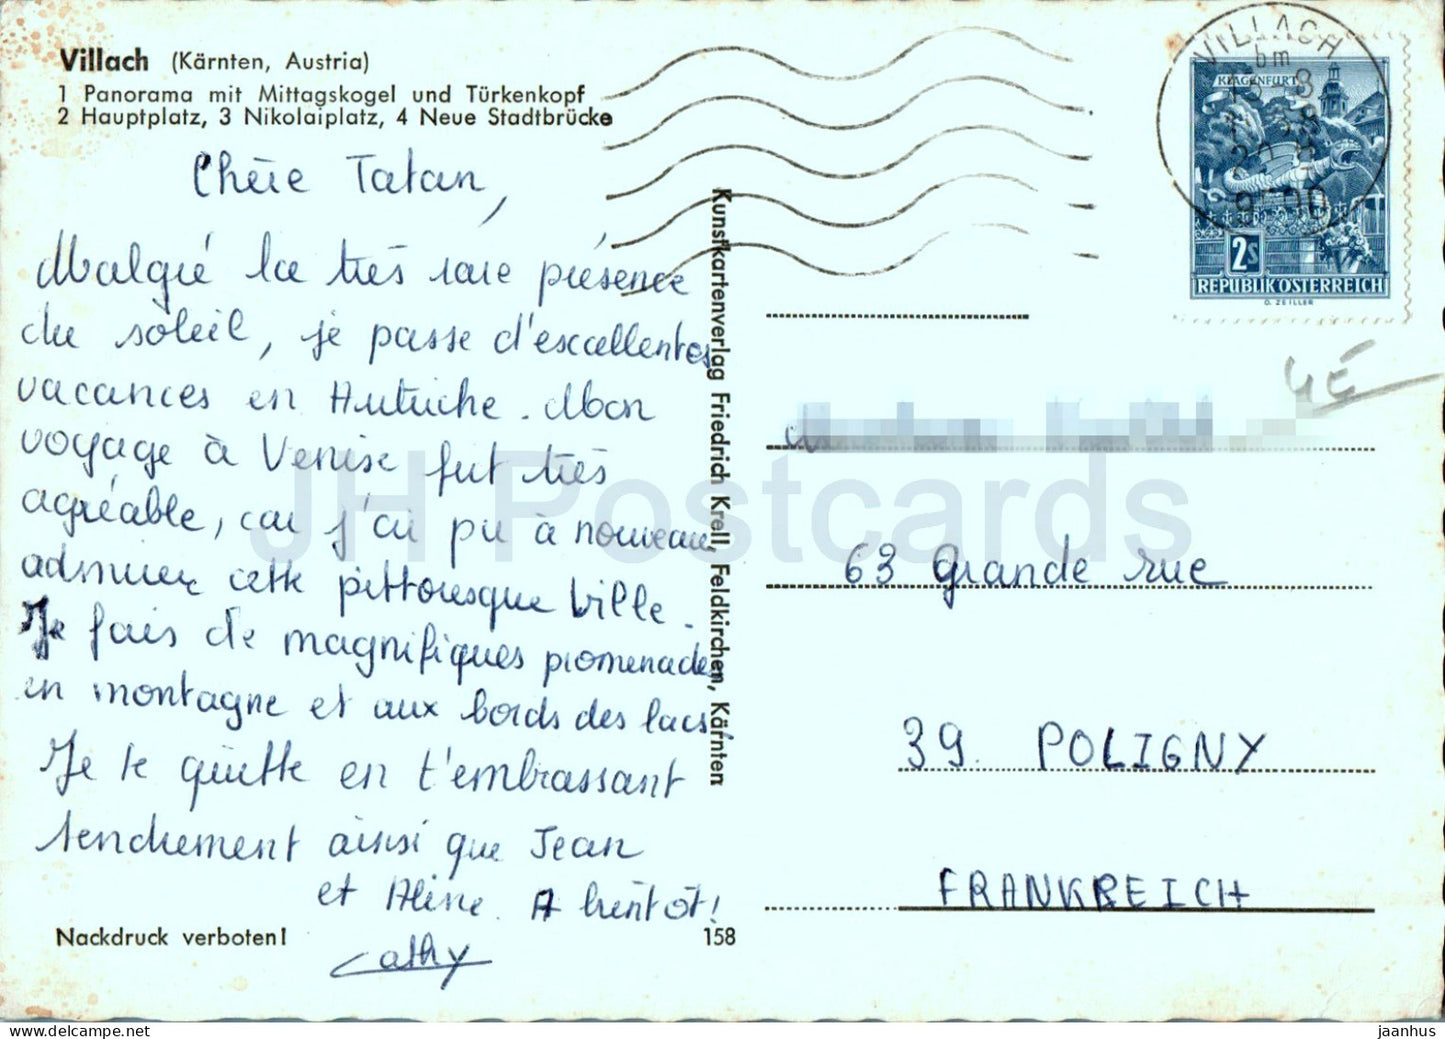 Villach (Kärnten, Austria)
1 Panorama mit Mittagskogel und Türkenkopf
2 Hauptplatz, 3 Nikolaiplatz, 4 Neue Stadtbrücke
Chère Tatan,
Malgré la très rare présence
du soleil, je passe d'excellentes
vacances en Autriche. Mon
voyage à Venise fut très
agréable, car j'ai pu à nouveau
admirer cette pittoresque ville.
Je fais de magnifiques promenades
en montagne et aux bords des lacs.
Je te quitte en t'embrassant
tendrement ainsi que Jean
et Aline. A bientôt!
Cathy
Nackdruck verboten!
158
Kunstkartenverlag Friedrich Kroll, Feldkirchen, Kärnten
VILLACH
KLAGENFURT
2s
REPUBLIK ÖSTERREICH
O. ZEILLER
4É
63 grande rue
39. POLIGNY
FRANKREICH
JH Postcards
jaanhus
HIP POSTCARD.com